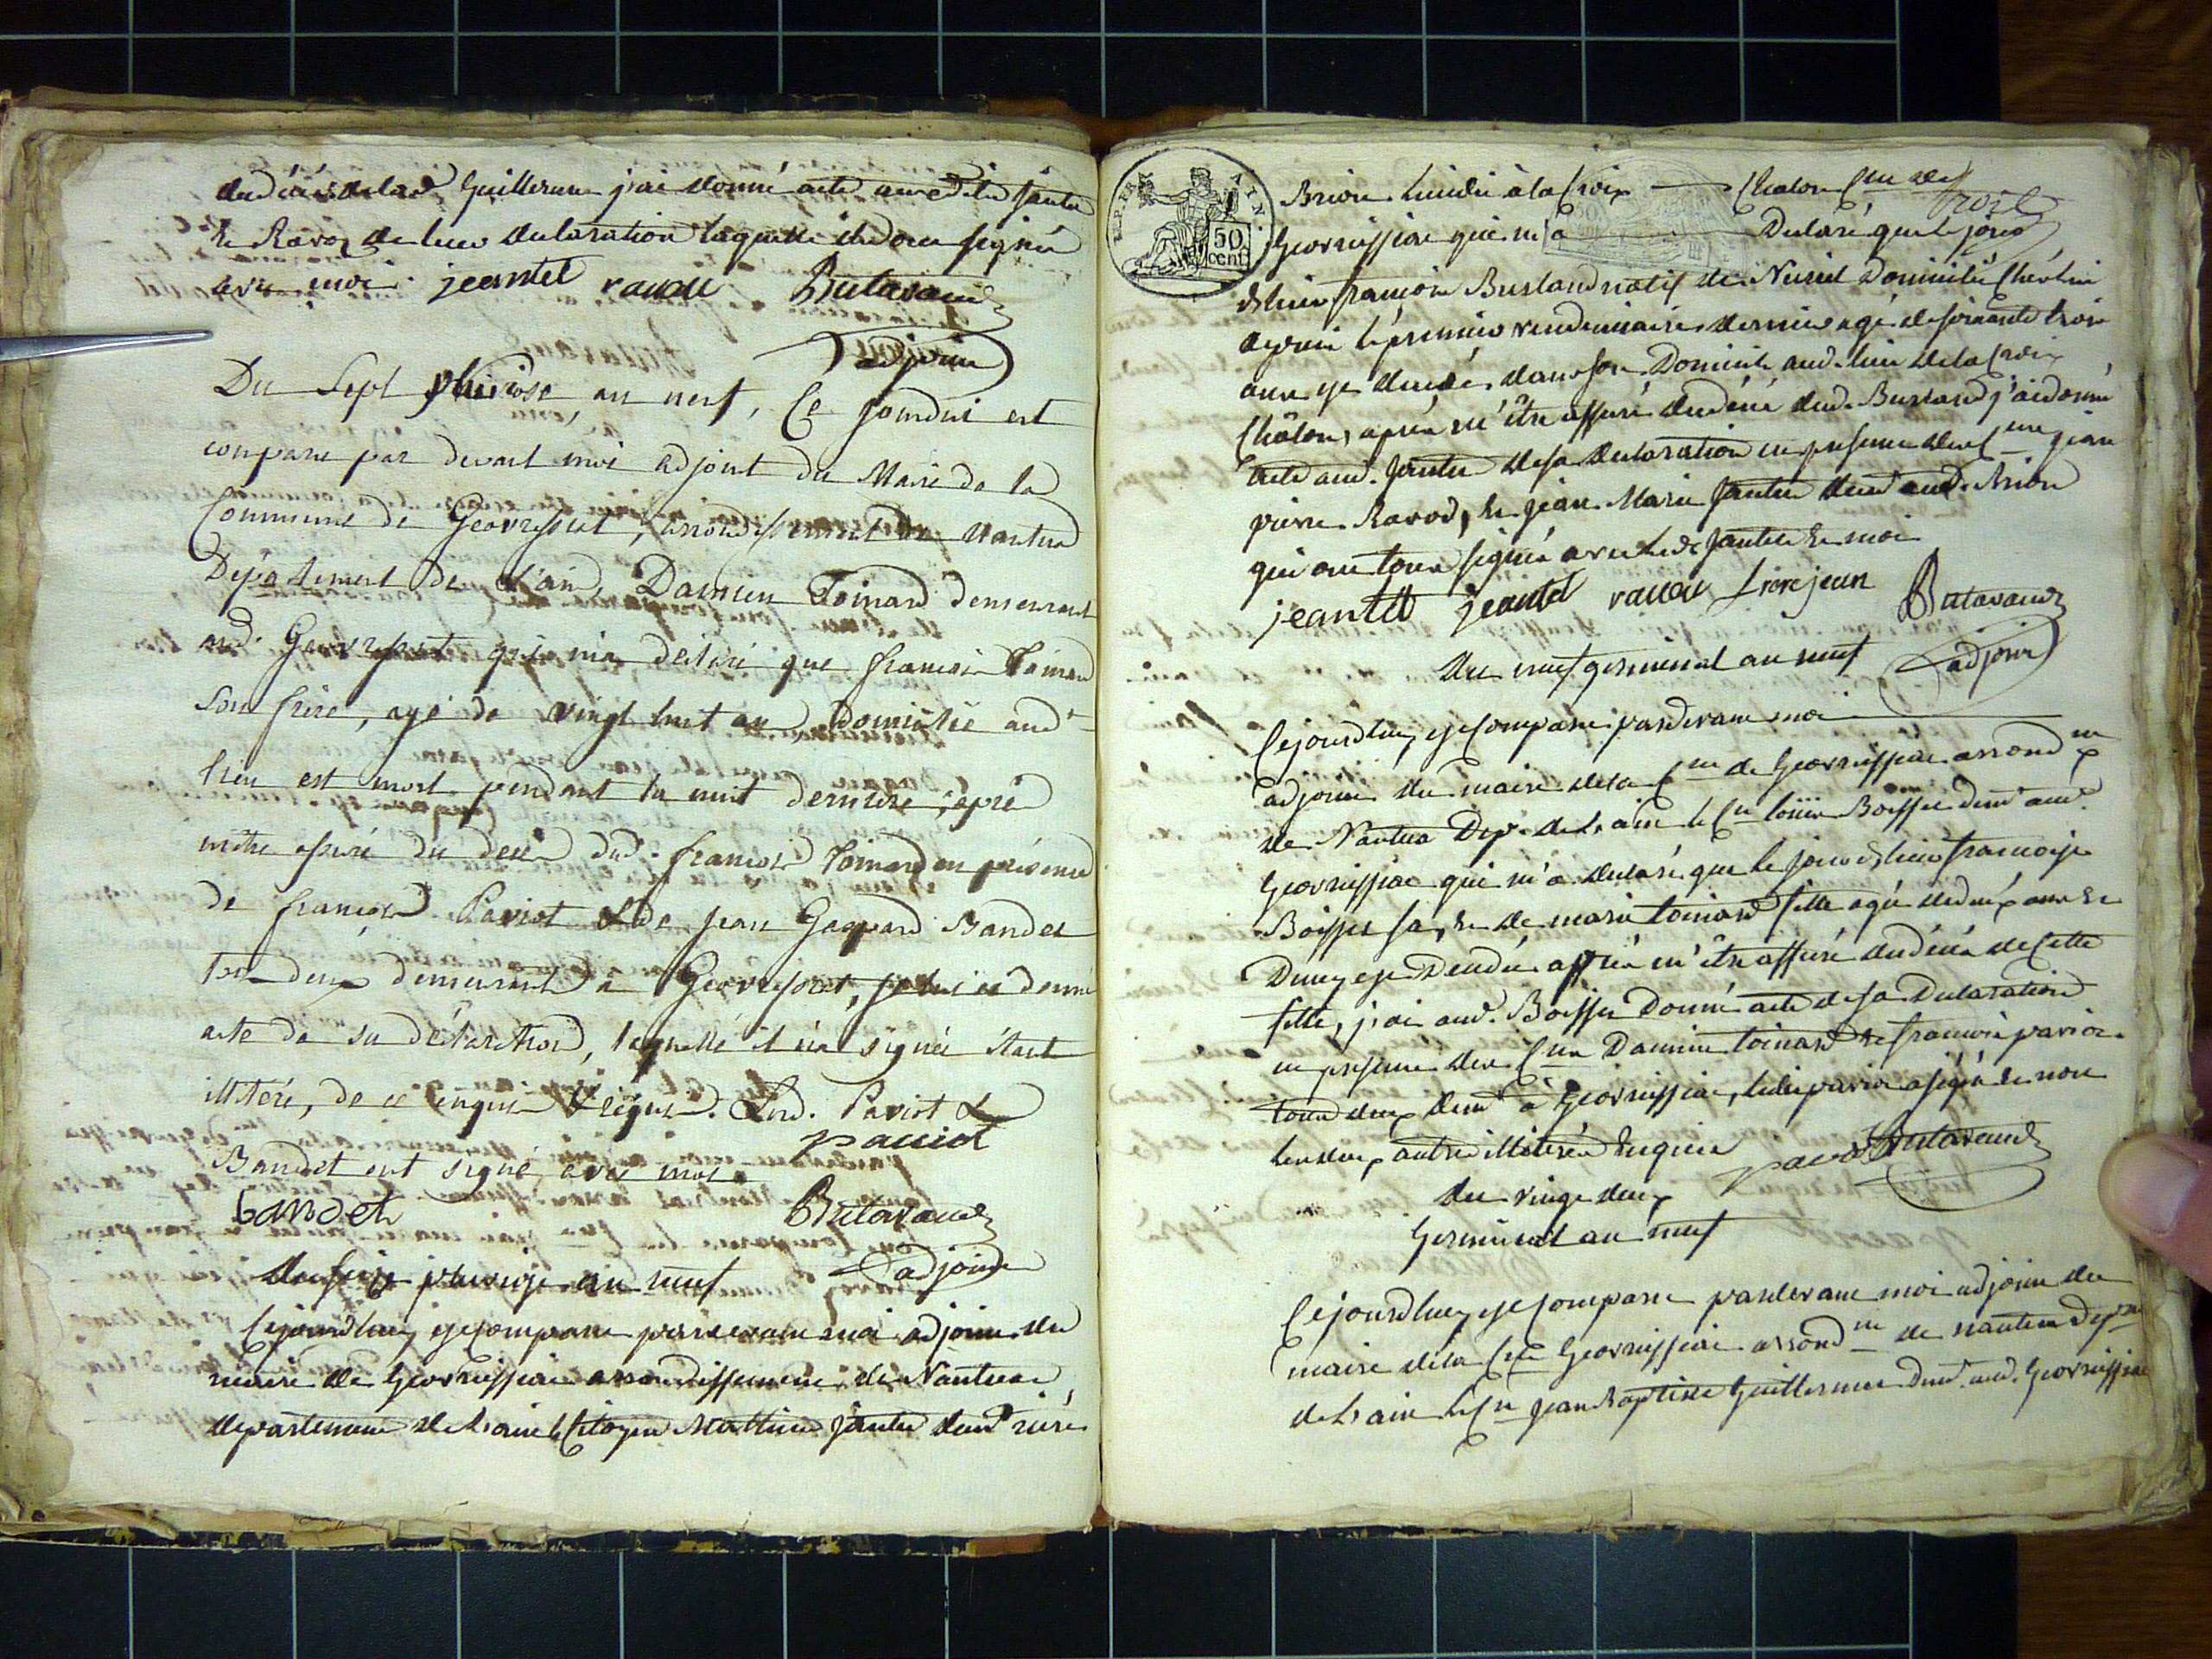 du décès de lad. Guillerme j'ai donné acte auxdits Jantet
& Ravoz de leur declaration laquelle ils ont signée
avec moi jeantet ravou Butavand
adjoint
Du Sept pluviôse, an neuf, Ce jourdui est
comparu par devant moi adjoint du Maire de la
Commune de Geovresset, arrondissement de Nantua
Département de l'ain, Damien Toinard demeurant
aud. Geovresset qui m'a déclaré que francois Toinard
son frère, agé de vingt huit an, domicilié aud.
lieu est mort pendant la nuit dernière; après
mêtre assuré du decès dud. francois Toinard en présence
de francois Paviot & de jean Gaspard Bandet
tous deux demeurant à Geovresset, je lui ai donné
acte de sa déclaration, laquelle il n'a signée étant
illitéré, de ce enquis & réquis. Led. Paviot &
paviot
Bandet ont signé avec moi.
bandet Butavand
du seize pluviose an neuf adjoint
Cejourdhuy est comparu pardevant moi adjoint du
maire de Geovreissiac arrondissement de Nantua
departement de L'ain le Citoyen Mathieu Jantet demt rière
Brion lieudit à la Croix Chalon Cne de
trois
Geovreissiac qui m'a Declaré que le jour
d'hier francois Burland natif de Nurieu domicilié
depuis le premier vendemiaire dernier agé de soixante trois
ans est decedé dans son Domicile aud. lieu de la Croix
Châlon, après m'être assuré du décès dud. Burland j'ai donné
acte aud. Jantet de sa declaration en presence des Cens jean
pierre Ravod, & jean Marie Jantet demt aud. Brion
qui ont tous signés avec led. Jantet & moi
jeantet jeantet ravou jean Butavand
du neuf germinal an neuf adjoint
Cejourdhuy est Comparu pardevant moi
adjoint du maire de la Cne de Geovreissiac arrondm
de Nantua Dept. de L'ain le Cn louis Boisset demt aud.
Geovreissiac qui m'a declaré que le jour d'hier francoise
Boisset sa, & de marie toinard fille agée de deux ans &
Demy est Decedée après m'être assuré du décès de Cette
fille, j'ai aud. Boisset Donné acte de sa Declaration
en presence des Cens Damien toinard & francois paviot
tous deux demt à Geovreissiac, ledit paviot a signé & non
les deux autres illitérés Enquis paviot Butavand
du vingt deux
Germinal an neuf
Cejourdhuy est Comparu pardevant moi adjoint du
maire de la Cne Geovreissiac arrondm de nantua Dept
de L'ain le Cn jean Baptiste Guillerme demt aud. Geovreissiac
50
cent.
REP. FRA
AIN